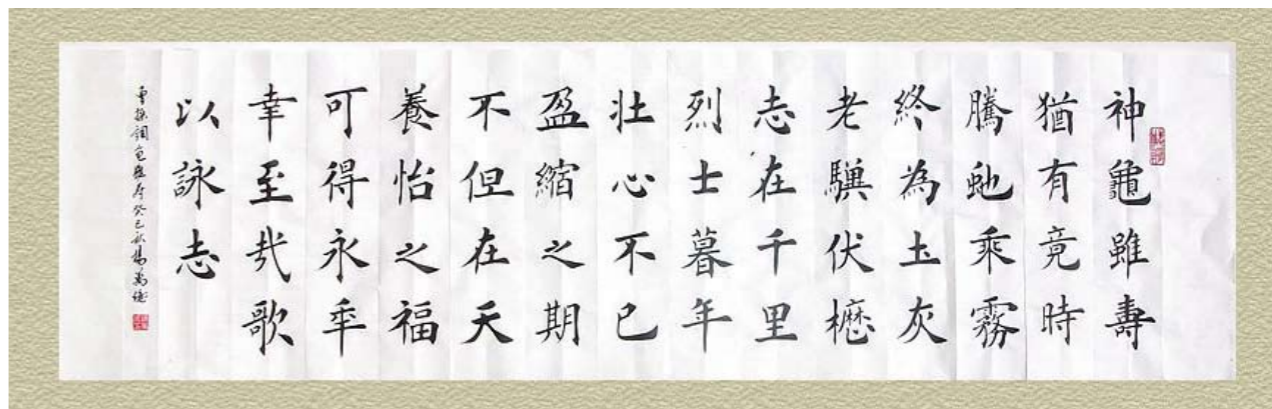 神龜雖壽
猶有竟時
騰虵乘霧
終為土灰
老驥伏櫪
志在千里
烈士暮年
壯心不已
盈縮之期
不但在天
養怡之福
可得永年
幸至哉歌
以詠志
曹操詞龜雖壽癸巳秋楊